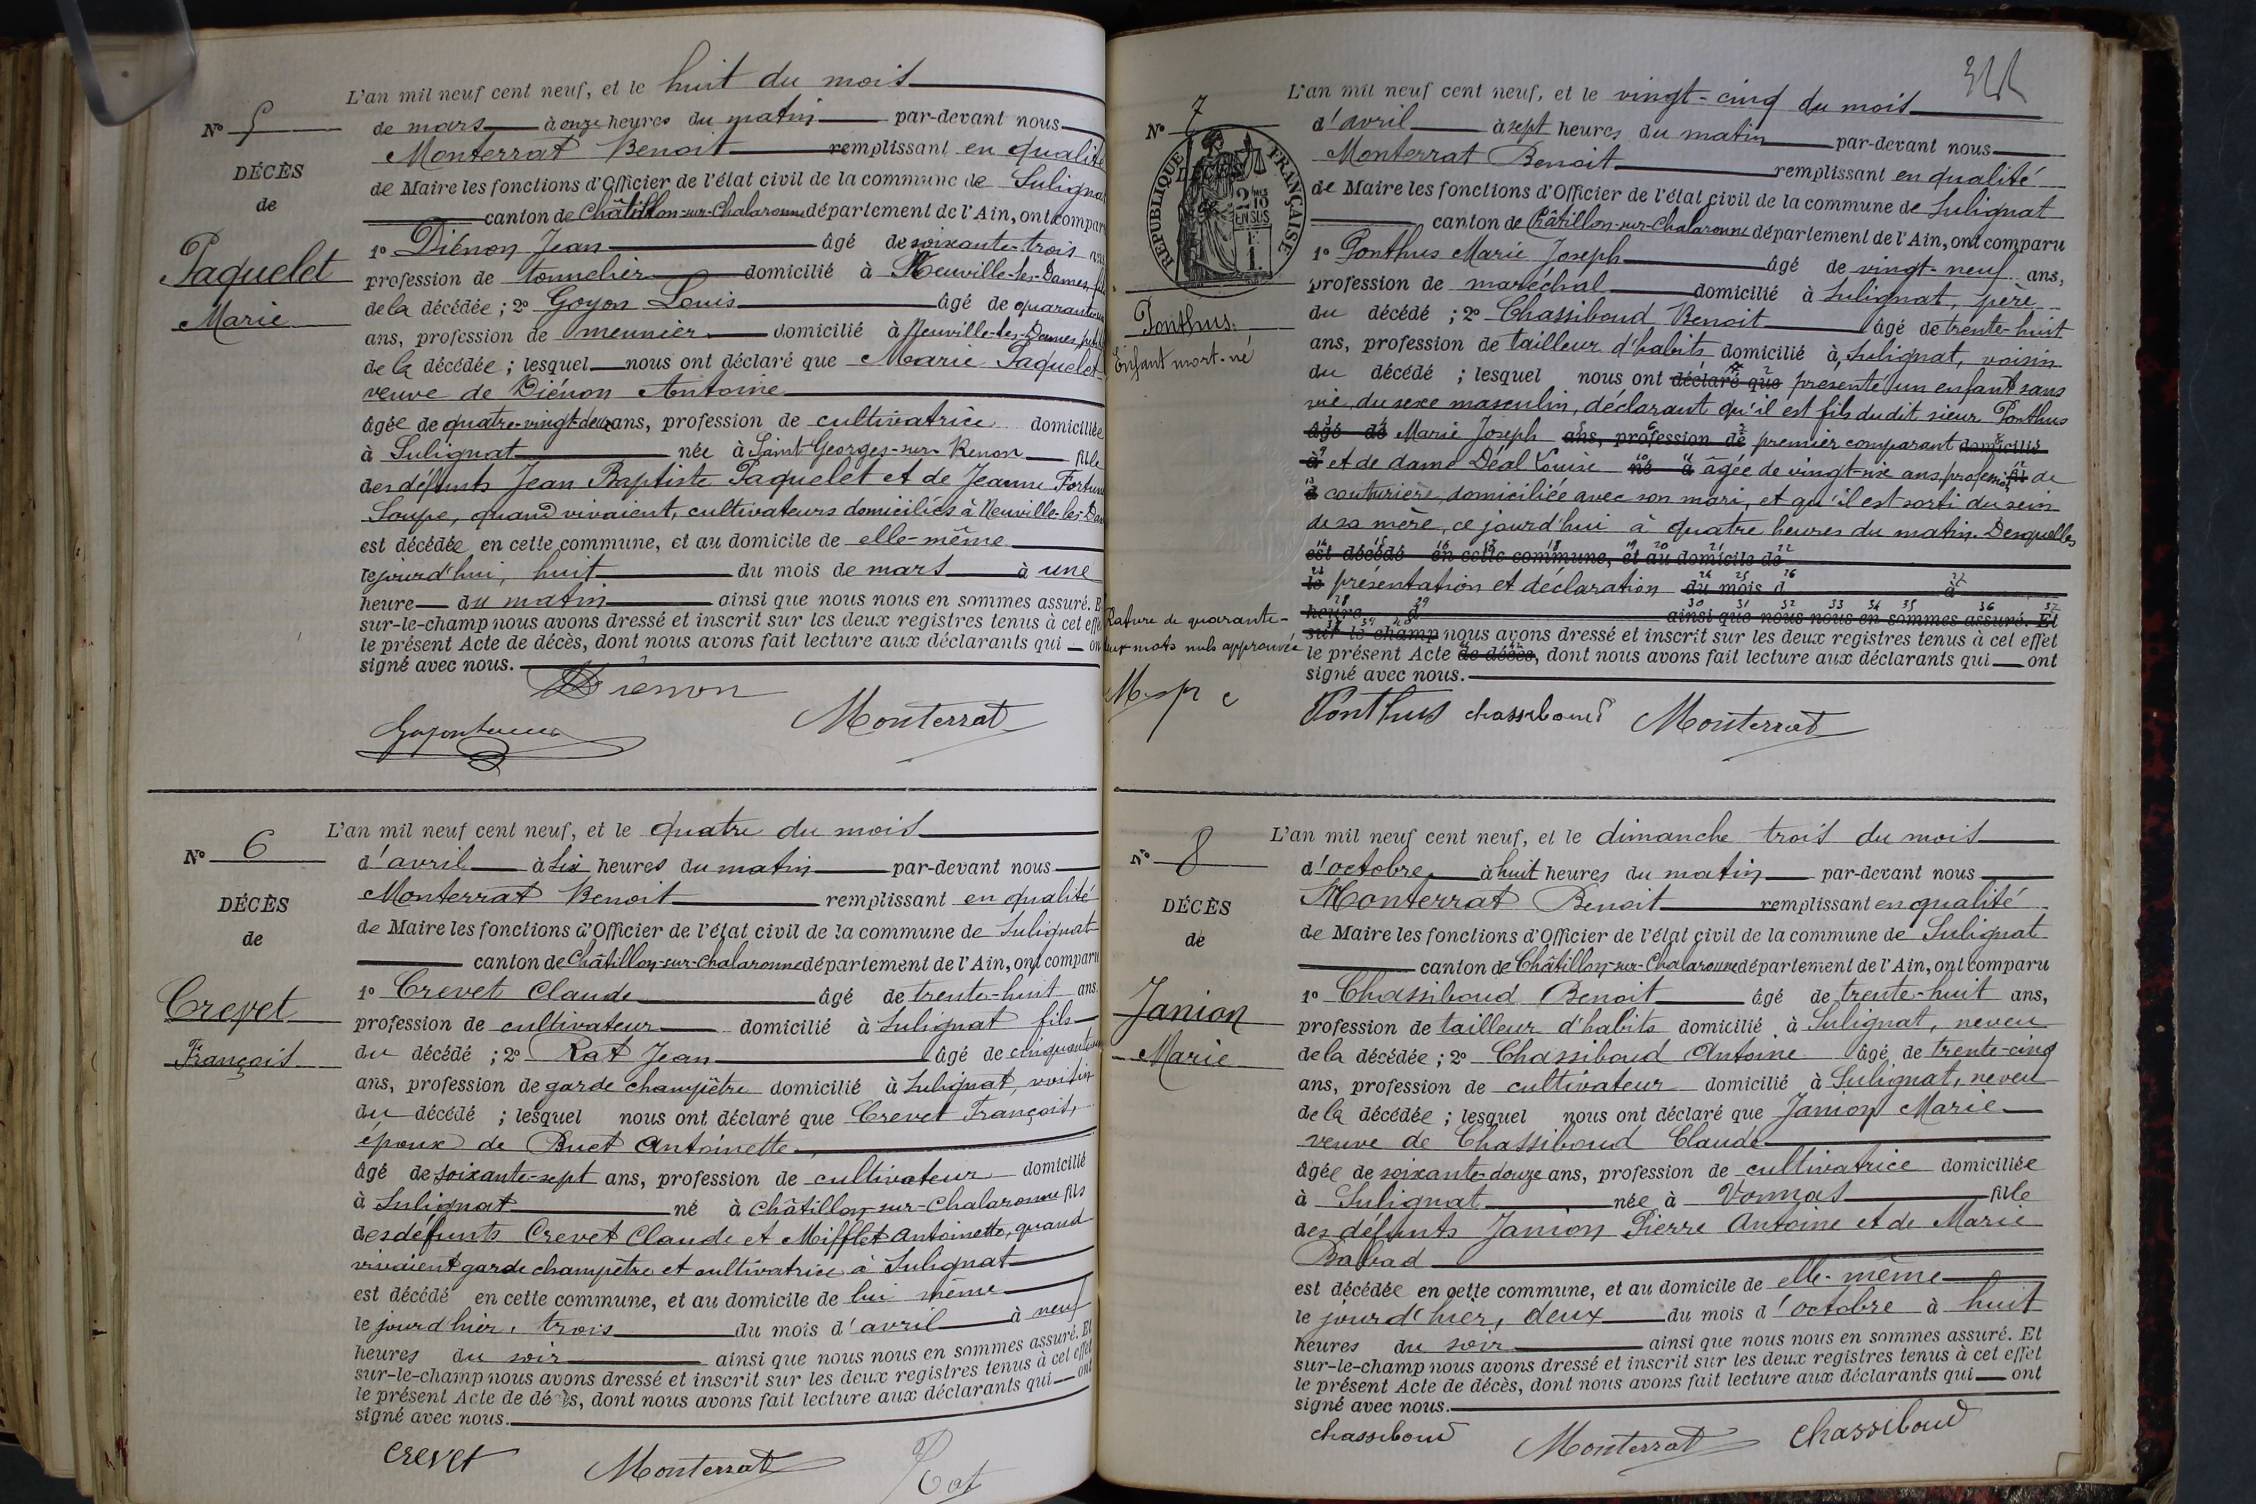 L'an mil neuf cent neuf, et le huit du mois
No 5
de mars à onze heures du matin par-devant nous
Monterrat Benoit remplissant en qualité
DÉCÈS
de Maire les fonctions d'Officier de l'état civil de la commune de Sulignat
de
canton de Châtillon-sur-Chalaronne département de l'Ain, ont compar
1o Diénon Jean âgé de soixante-trois ans
Paquelet
profession de tonnelier domicilié à Neuville-les-Dames, fils
Marie
de la décédée ; 2o Goyon Louis âgé de quarante
ans, profession de meunier domicilié à Neuville-les-Dames,
de la décédée ; lesquel nous ont déclaré que Marie Paquelet
veuve de Diénon Antoine
âgée de quatre-vingt-deux ans, profession de cultivatrice domiciliée
à Sulignat née à Saint-Georges-sur-Renon fille
des défunts Jean Baptiste Paquelet et de Jeanne Fortune
Soupe, quand vivaient, cultivateurs domiciliés à Neuville-les-Dam
est décédée en cette commune, et au domicile de elle-même
le jourd'hui, huit du mois de mars à une
heure du matin ainsi que nous nous en sommes assuré. E
sur-le-champ nous avons dressé et inscrit sur les deux registres tenus à cet effe
le présent Acte de décès, dont nous avons fait lecture aux déclarants qui on
signé avec nous.
Diénon
Monterrat
L'an mil neuf cent neuf, et le quatre du mois
No 6
d'avril à six heures du matin par-devant nous
Monterrat Benoit remplissant en qualité
DÉCÈS
de Maire les fonctions d'Officier de l'état civil de la commune de Sulignat
de
canton de Châtillon-sur-Chalaronne département de l'Ain, ont comparu
1o Crevet Claude âgé de trente-huit ans.
Crevet
profession de cultivateur domicilié à Sulignat fils
François
du décédé ; 2o Rat Jean âgé de cinquante
ans, profession de garde champêtre domicilié à Sulignat, voisin
du décédé ; lesquel nous ont déclaré que Crevet François,
époux de Buet Antoinette
âgé de soixante-sept ans, profession de cultivateur domicilié
à Sulignat né à Châtillon-sur-Chalaronne fils
des défunts Crevet Claude et Mifflet Antoinette, quand
vivaient garde champêtre et cultivatrice à Sulignat
est décédé en cette commune, et au domicile de lui même
le jourd'hier, trois du mois d'avril à neuf
heures du soir ainsi que nous nous en sommes assuré. Et
sur-le-champ nous avons dressé et inscrit sur les deux registres tenus à cet effet
le présent Acte de décès, dont nous avons fait lecture aux déclarants qui ont
signé avec nous.
Crevet Monterrat Rat
L'an mil neuf cent neuf, et le vingt-cinq du mois
No 7
d'avril à sept heures du matin par-devant nous
Monterrat Benoit remplissant en qualité
DÉCÈS
RÉPUBLIQUE FRANÇAISE
2 DIXMES 10 EN SUS
F. 1.
de Maire les fonctions d'Officier de l'état civil de la commune de Sulignat
canton de Châtillon-sur-Chalaronne département de l'Ain, ont comparu
1o Ponthus Marie Joseph âgé de vingt-neuf ans,
profession de maréchal domicilié à Sulignat, père
Ponthus.
Enfant mort-né
du décédé ; 2o Chassiboud Benoit âgé de trente-huit
ans, profession de tailleur d'habits domicilié à Sulignat, voisin
du décédé ; lesquel nous ont déclaré que présenté un enfant sans
vie, du sexe masculin, déclarant qu'il est fils dudit sieur Ponthus
âgé de Marie Joseph ans, profession de premier comparant domicilié
à et de dame Déal Louise né à âgée de vingt-six ans, profession fil de
à couturière, domiciliée avec son mari, et qu'il est sorti du sein
de sa mère, ce jourd'hui à quatre heures du matin. Desquelles
est décédé en cette commune, et au domicile de
le présentation et déclaration du mois d à
heure d ainsi que nous nous en sommes assuré. Et
sur-le-champ nous avons dressé et inscrit sur les deux registres tenus à cet effet
le présent Acte de décès, dont nous avons fait lecture aux déclarants qui ont
signé avec nous.
Rature de quarante-
deux mots nuls approuvée
Ponthus chassiboud Monterrat
L'an mil neuf cent neuf, et le dimanche trois du mois
No 8
d'octobre à huit heures du matin par-devant nous
Monterrat Benoit remplissant en qualité
DÉCÈS
de Maire les fonctions d'Officier de l'état civil de la commune de Sulignat
de
canton de Châtillon-sur-Chalaronne département de l'Ain, ont comparu
1o Chassiboud Benoit âgé de trente-huit ans,
Janion
profession de tailleur d'habits domicilié à Sulignat, neveu
Marie
de la décédée ; 2o Chassiboud Antoine âgé de trente-cinq
ans, profession de cultivateur domicilié à Sulignat, neveu
de la décédée ; lesquel nous ont déclaré que Janion Marie
veuve de Chassiboud Claude
âgée de soixante-douze ans, profession de cultivatrice domiciliée
à Sulignat née à Vonnas fille
des défunts Janion Pierre Antoine et de Marie
Babad
est décédée en cette commune, et au domicile de elle-même
le jourd'hier, deux du mois d'octobre à huit
heures du soir ainsi que nous nous en sommes assuré. Et
sur-le-champ nous avons dressé et inscrit sur les deux registres tenus à cet effet
le présent Acte de décès, dont nous avons fait lecture aux déclarants qui ont
signé avec nous.
chassiboud Monterrat chassiboud